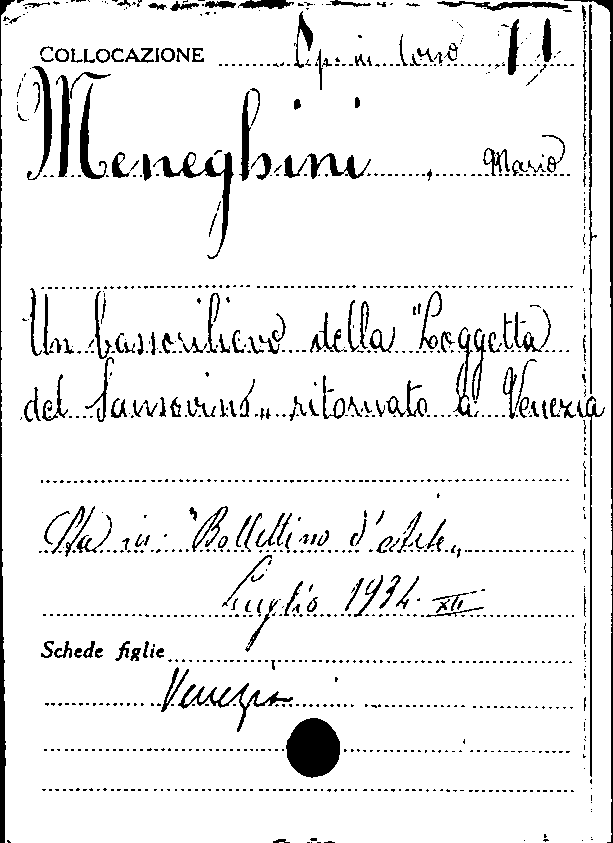 COLLOCAZIONE Op. in Corso 11
Meneghini, Mario
Un bassorilievo della "Loggetta
del Sansovino„ ritornato a Venezia
Sta in: "Bollettino d'arte„
Luglio 1934. XII
Schede figlie
Venezia